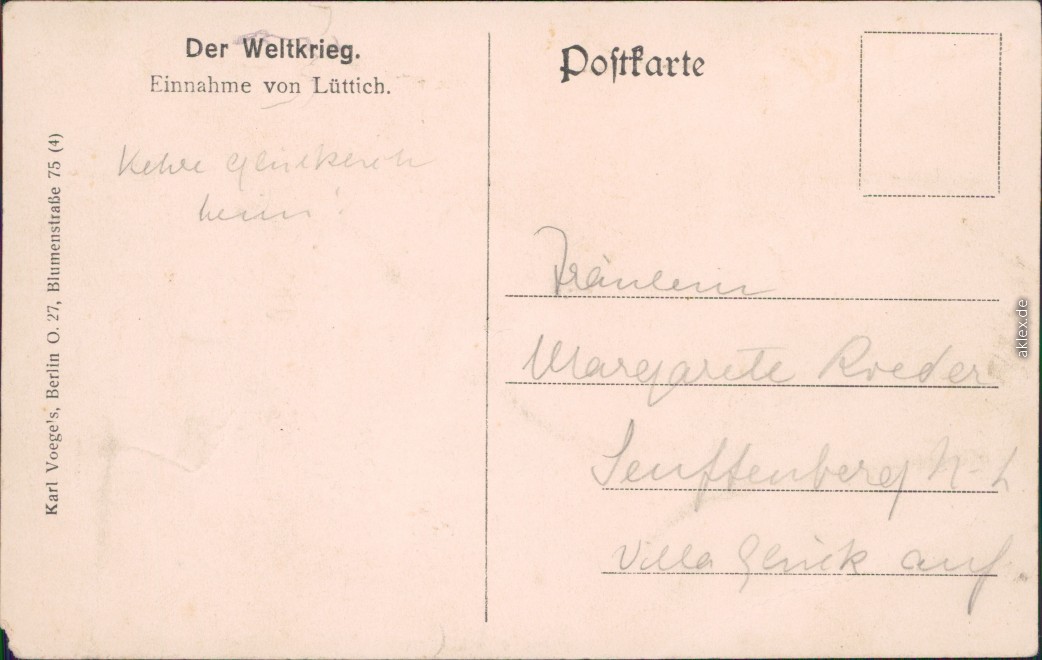 Der Weltkrieg.
Einnahme von Lüttich.
Kehre glückerich
heim!
Karl Voege's, Berlin O. 27, Blumenstraße 75 (4)
Postkarte
Fräulein
Margarete Roeder
Senftenberg N-L
Villa Glück auf.
aklex.de